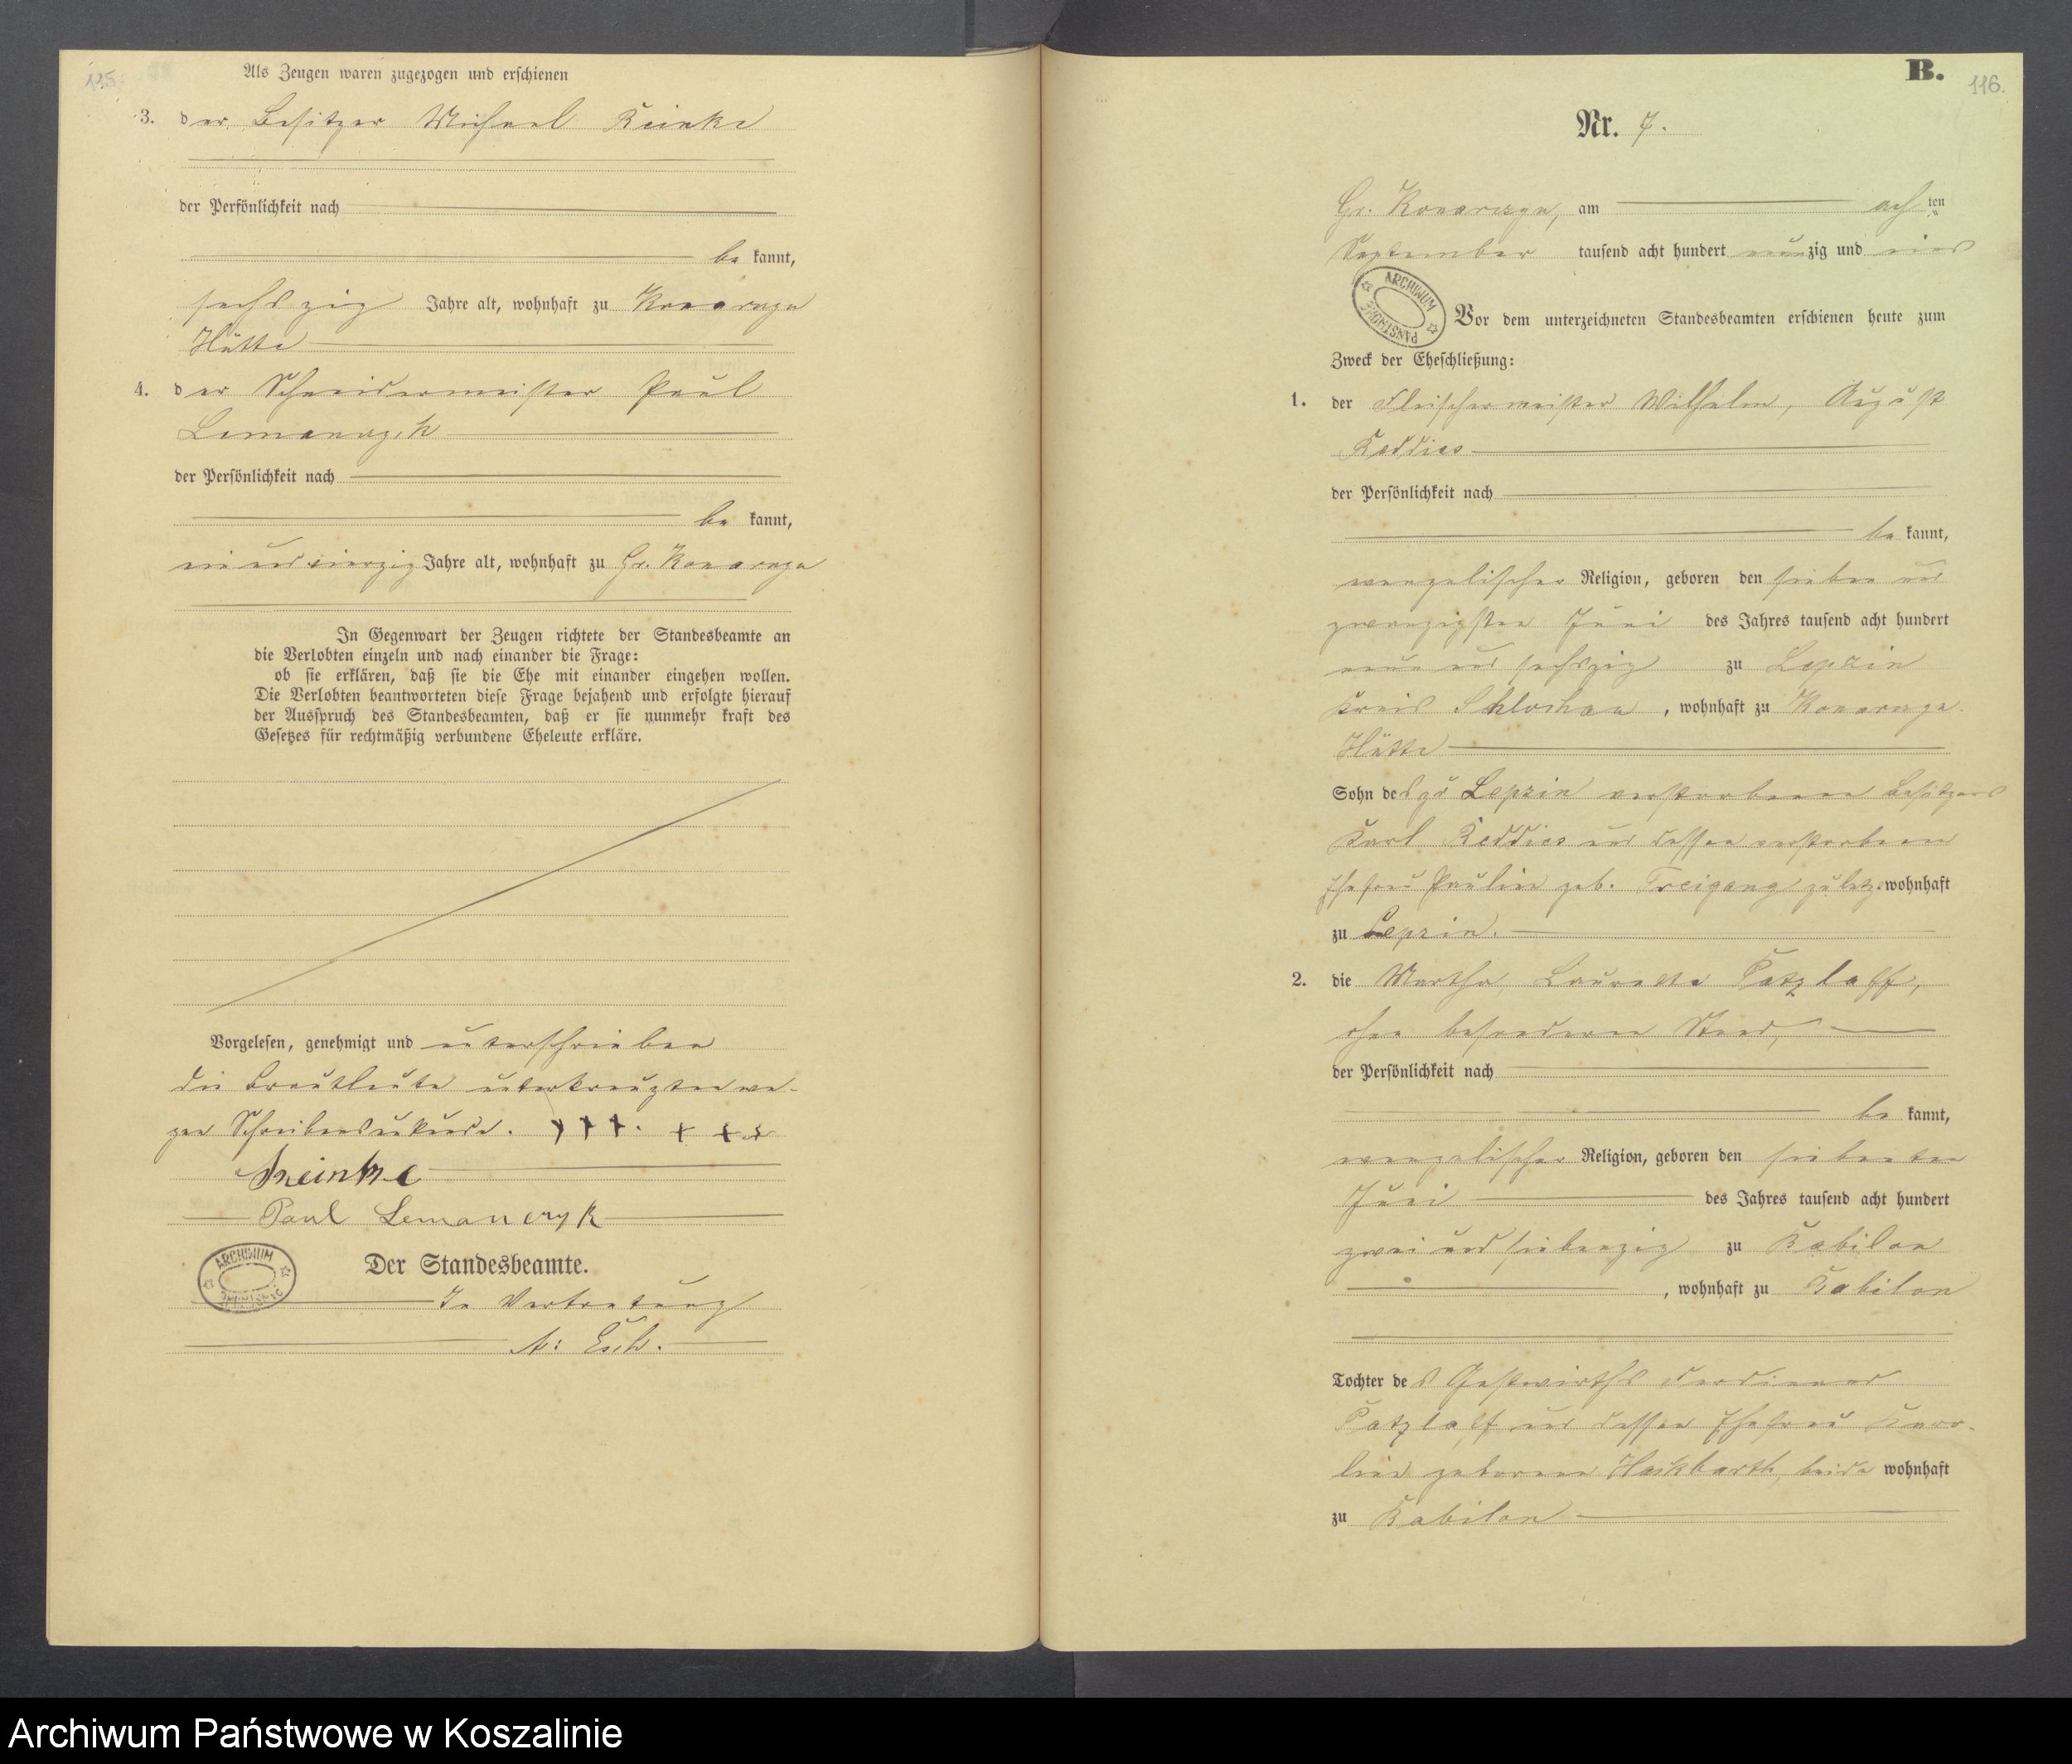 115.
Als Zeugen waren zugezogen und erschienen
3. der Besitzer Michael Reinke
der Persönlichkeit nach
be kannt,
sechszig Jahre alt, wohnhaft zu Konarczyn
Hütte
4. der Schneidermeister Paul
Lemanczyk
der Persönlichkeit nach
be kannt,
ein und vierzig Jahre alt, wohnhaft zu Gr. Konarczyn
In Gegenwart der Zeugen richtete der Standesbeamte an
die Verlobten einzeln und nach einander die Frage:
ob sie erklären, daß sie die Ehe mit einander eingehen wollen.
Die Verlobten beantworteten diese Frage bejahend und erfolgte hierauf
der Ausspruch des Standesbeamten, daß er sie nunmehr kraft des
Gesetzes für rechtmäßig verbundene Eheleute erkläre.
Vorgelesen, genehmigt und unterschrieben
die Brautleute unterkreuzten we-
gen Schreibensunkunde. +++. +++
Reinke
Paul Lemanczyk
ARCHIWUM PAŃSTWOWE
Der Standesbeamte.
In Vertretung
B.
116.
Nr. 7.
Gr. Konarczyn, am achten
September tausend acht hundert neunzig und vier
ARCHIWUM PAŃSTWOWE
Vor dem unterzeichneten Standesbeamten erschienen heute zum
Zweck der Eheschließung:
1. der Fleischermeister Wilhelm, August
Reddies
der Persönlichkeit nach
be kannt,
evangelischer Religion, geboren den sieben und
zwanzigsten Juni des Jahres tausend acht hundert
neun und sechszig zu Lepzin
Kreis Schlochau, wohnhaft zu Konarczyn
Hütte
Sohn des zu Lepzin verstorbenen Besitzers
Karl Reddies und dessen verstorbenen
Ehefrau Pauline geb. Freigang zuletzt wohnhaft
zu Lepzin.
2. die Martha, Laurette Patzlaff,
ohne besonderen Stand,
der Persönlichkeit nach
be kannt,
evangelischer Religion, geboren den siebenten
Juni des Jahres tausend acht hundert
zwei und siebenzig zu Babilon
, wohnhaft zu Babilon
Tochter des Gastwirths Ferdinand
Patzlaff und dessen Ehefrau Karo-
line geborene Hackbarth, beide wohnhaft
zu Babilon
Archiwum Państwowe w Koszalinie